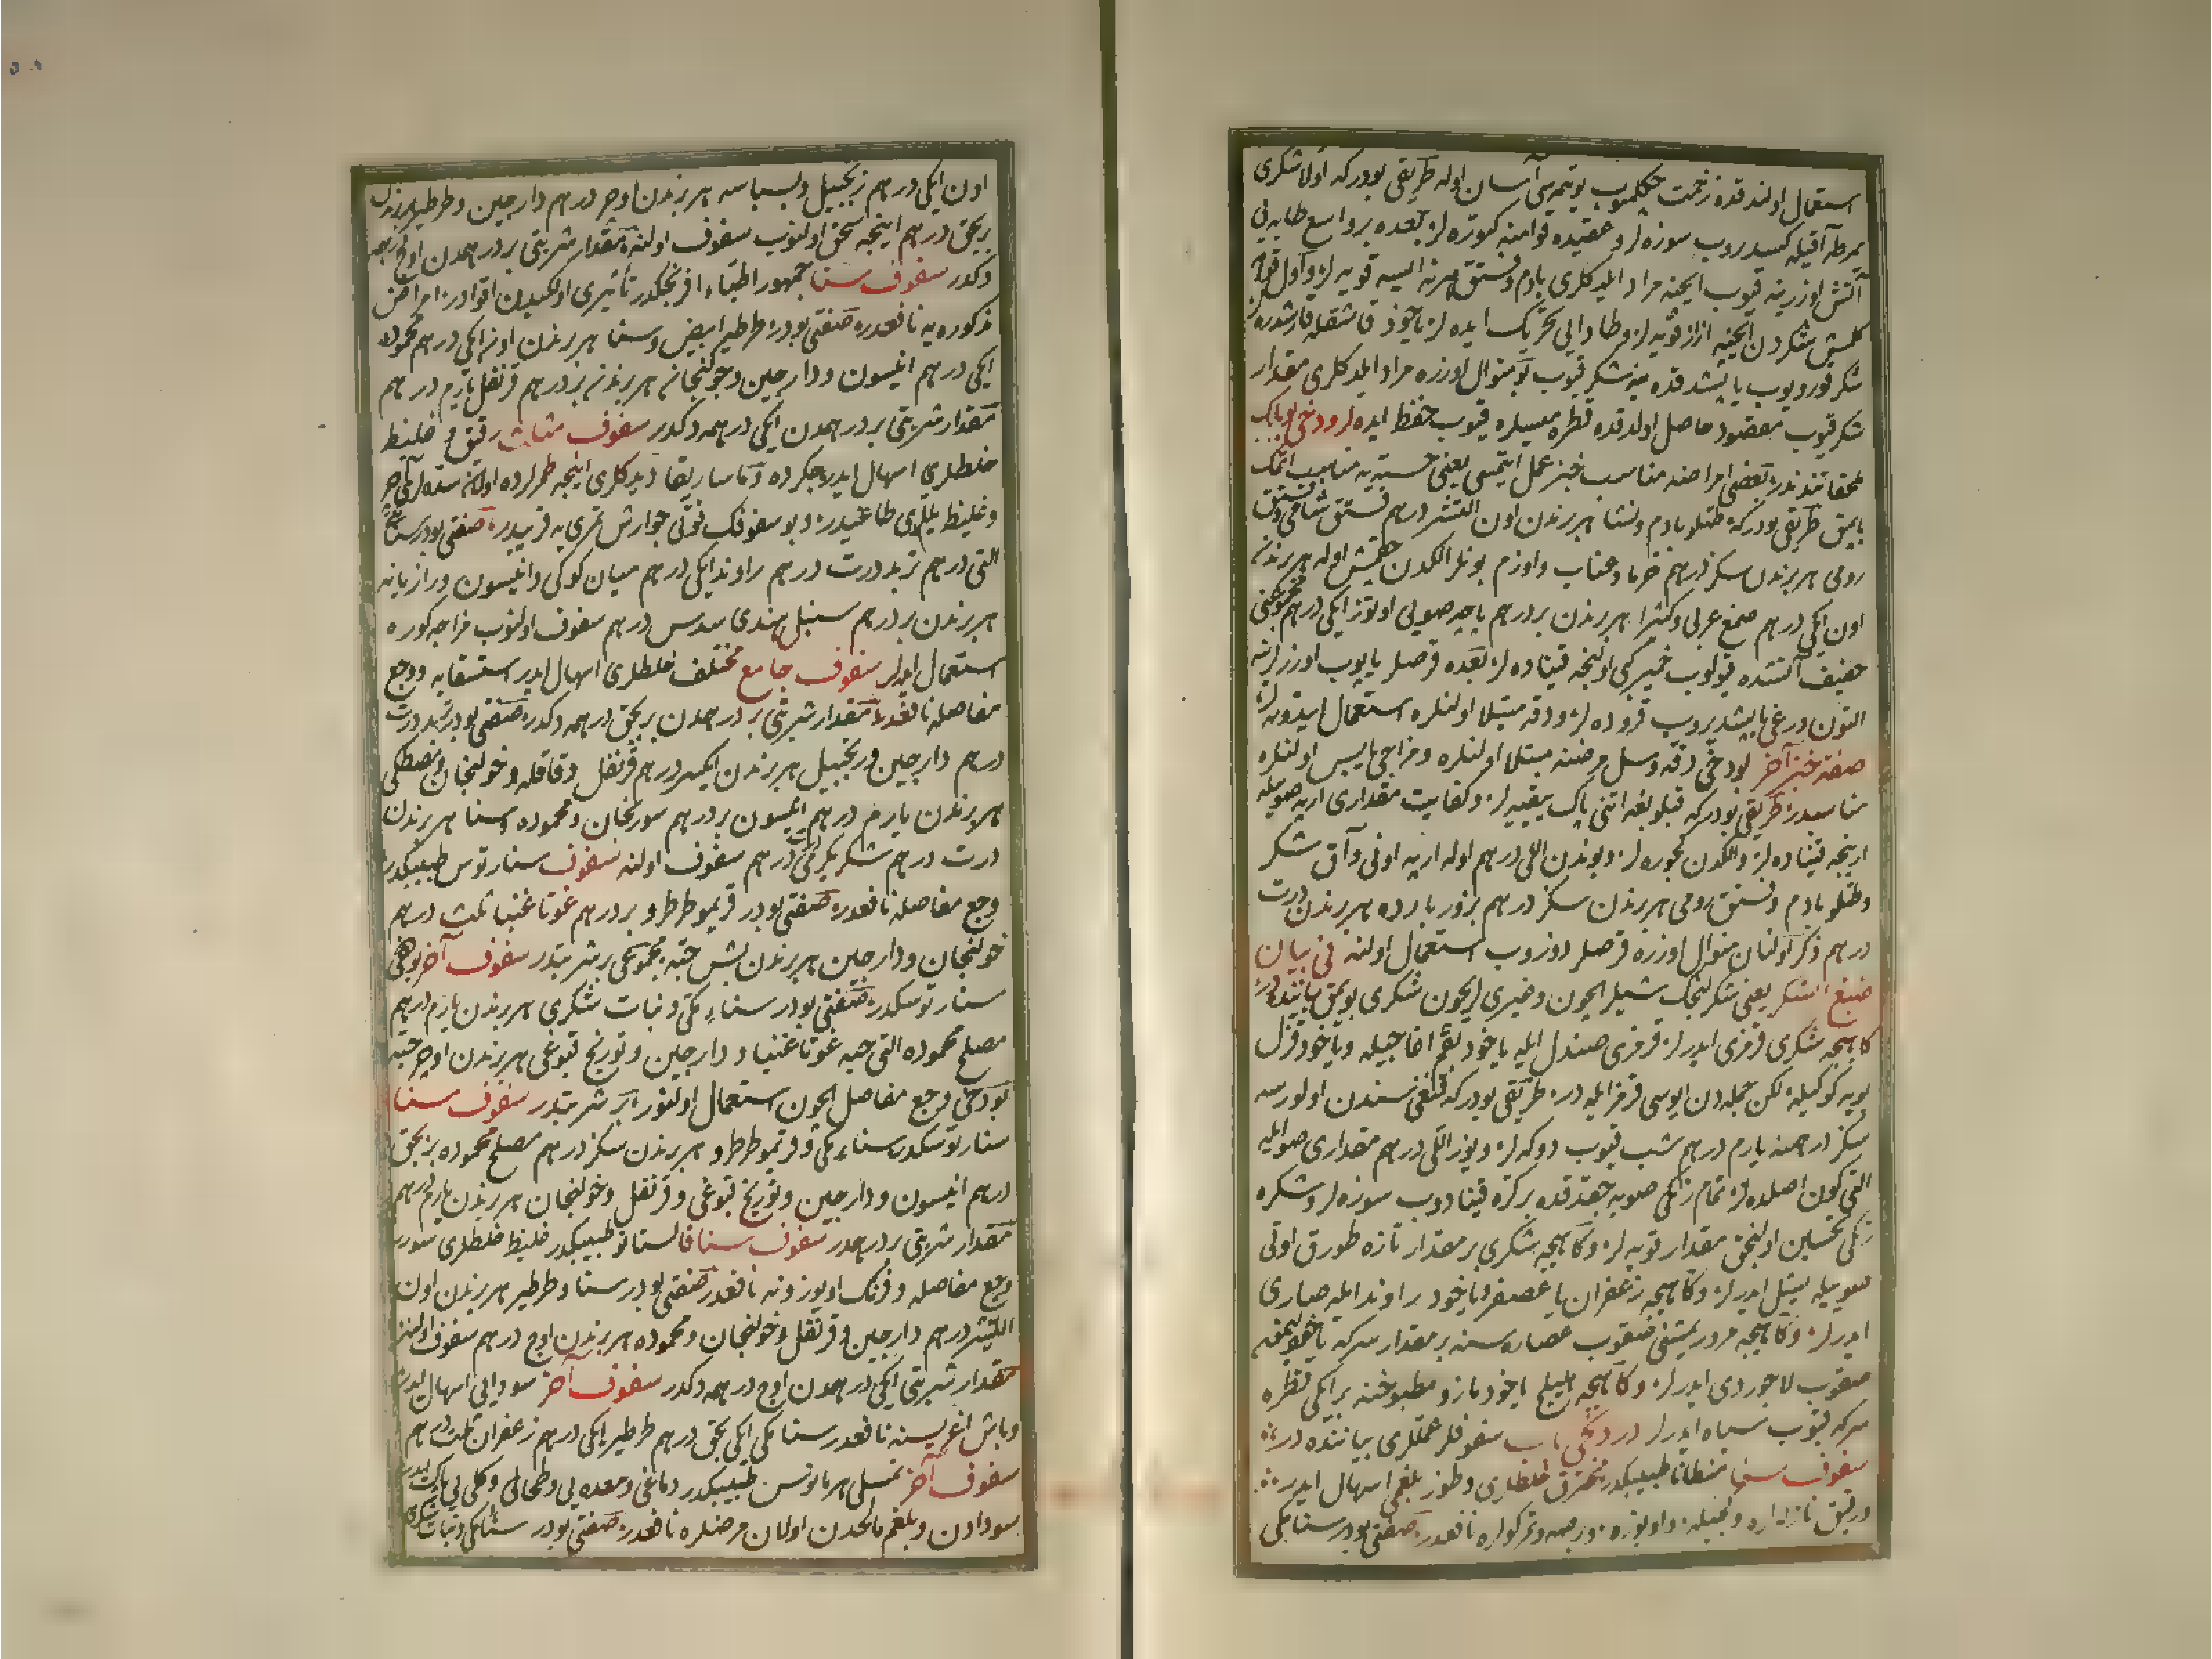 استعمال اولندقده زحمت چكلميوب يوتمه‌سى آسان اوله طريقى بودركه اولا شكرى
يمرطه آقيله كسدروب سوزه‌لر و عقيده قوامنه كتوره‌لر بعده بر واسع طابه‌يى
آتش اوزرينه قيوب ايچنه مراد ايلدكلرى بادم و فستق هر نه ايسه قويه‌لر و اول
كلمش شكردن ايچنه ازاز قويه‌لر و طابه‌يى تحريك ايده‌لر ياخود قاشقله قارشدره‌لر
شكر قورويوب ياپشدقده ينه شكر قيوب بو منوال اوزره مراد ايلدكلرى مقدار
شكر قيوب مقصود حاصل اولدقده قطره ميسيله قيوب حفظ ايده‌لر ودخى بو باك
ملحقاتندندر بعضى امراضه مناسب خبز عمل ايتمسى يعنى خسته‌يه مناسب اتمك
ياپمق طريقى بودركه طتلو بادم ونشا هر برندن اون التشر درهم فستق شامى وفستق
رومى هر برندن سكز درهم خرما وعناب واوزم بونلر الكدن چقمش اوله هر برندن
اون ايكى درهم صمغ عربى وكثيرا هر برندن بر درهم پاچه صويى اوتوز ايكى درهم مجموعنى
خفيف آتشده قويلوب خمير كبى اولنجه قيناده‌لر بعده قرصلر ياپوب اوزرلرينه
التون ورغى ياپشديروب قروده‌لر ودقه مبتلا اولنلره استعمال ايتدوره‌لر
صفة خبز آخر بودخى دقه وسل مرضنه مبتلا اولنلره ومزاجى يابس اولنلره
مناسبدر طريقى بودركه قبلوبغه اتنى پاك ييقيه‌لر وكفايت مقدارى ارپه صويله
ازينجه قيناده‌لر والكدن كچوره‌لر وبوندن اللى درهم اوله ارپه اونى وآق شكر
وطتلو بادم وفستق رومى هر برندن سكز درهم بزور بارده هر برندن درت
درهم ذكر اولنان منوال اوزره قرصلر دوزوب استعمال اولنه فى بيان
صبغ السكر يعنى شكرلنجك شيلر ايچون وغيرى ايچون شكرى بويمق بياننده‌در
كاهيجه شكرى قرمزى ايدرلر قرمزى صندل ايله ياخود بقم اغاجيله وياخود قزل
بويه كوكيله لكن جمله‌دن ايوسى قرمز ايله‌در طريقى بودركه قنغى سندن اولورسه
سكز درهمنه يارم درهم شب قيوب دوكه‌لر ويوز اللى درهم مقدارى صو ايله
التى كون اصلده‌لر تمام رنكى صويه چقدقده بر كره قينادوب سوزه‌لر وشكره
رنكى تحسين اولنجق مقدار قويه‌لر وكاهيجه شكرى بر مقدار تازه طورق اوتى
صوييله يشيل ايدرلر وكاهيجه زعفران يا عصفر وياخود راوند ايله صارى
ايدرلر وكاهيجه مرور يمشنى صقوب عصاره‌سنه بر مقدار سركه ياخود ليمون
صقوب لاجوردى ايدرلر وكاهيجه هليلج ياخود مازو مطبوخنه بر ايكى قطره
سركه قيوب سياه ايدرلر دردنجى باب سفوفلر عمللرى بياننده در
سفوف سنا منطانا طبيبكدر محترق خلطلرى وطوزلو بلغمى اسهال ايدر
ورقيق نازله‌لره وجميله واويوزه وجربه وتركولره نافعدر صفتى بودر سنامكى
اون ايكى درهم زنجبيل وبسباسه هر برندن اوچر درهم دارچين وطرطير هر برندن
بر بچق درهم اينجه سحق اولنوب سفوف اولنه مقدار شربتى بر درهمدن اوچ درهمه
دكدر سفوف سنا جمهور اطباء افرنجكدر تأثيرى اولكيدن اقوادر امراض
مذكوره‌يه نافعدر صفتى بودر طرطير ابيض وسنا هر برندن اون ايكى درهم محموده
ايكى درهم انيسون ودارچين وخولنجان هر برندن بر درهم قرنفل يارم درهم
مقدار شربتى بر درهمدن ايكى درهمه دكدر سفوف مثلث رقيق و غليظ
خلطلرى اسهال ايدر جكرده و ماساريقا ديدكلرى اينجه طمرلرده اولان سده‌لرى آچر
وغليظ يللرى طاغيدر وبو سفوفك قوتى جوارش تمرى يه قريبدر صفتى بودر سنا
التى درهم تربد درت درهم راوند ايكى درهم ميان كوكى وانيسون ورازيانه
هر برندن بر درهم سنبل هندى سدس درهم سفوف اولنوب مزاجه كوره
استعمال ايدلر سفوف جامع مختلف خلطلرى اسهال ايدر استسقايه ووجع
مفاصله نافعدر مقدار شربتى بر درهمدن بر بچق درهمه دكدر صفتى بودر تربد درت
درهم دارچين وزنجبيل هر برندن ايكيشر درهم قرنفل وقاقله وخولنجان ومصطكى
هر برندن يارم درهم انيسون بر درهم سورنجان ومحموده وسنا هر برندن
درت درهم شكر يكرمى درهم سفوف اولنه سفوف سنارتوس طبيبكدر
وجع مفاصله نافعدر صفتى بودر قريموطرطرو بر درهم غوتاغنبا ثلث درهم
خولنجان ودارچين هر برندن بش حبه مجموعى بر شربتدر سفوف آخر بودخى
سنارتوسكدر صفتى بودر سناء مكى ونبات شكرى هر برندن يارم درهم
مصلح محموده التى حبه غوتاغنبا ودارچين وتورنج قبوغى هر برندن اوچر حبه
بودخى وجع مفاصل ايچون استعمال اولنور بر شربتدر سفوف سنا
سنارتوسكدر سناء مكى وقريموطرطرو هر برندن سكز درهم مصلح محموده بر بچق
درهم انيسون ودارچين وتورنج قبوغى وقرنفل وخولنجان هر برندن يارم درهم
مقدار شربتى بر درهمدر سفوف سنا فالستانو طبيبكدر غليظ خلطلرى سورر
وجع مفاصله وفرنك اويوزونه نافعدر صفتى بودر سنا وطرطير هر برندن اون
التيشر درهم دارچين وقرنفل وخولنجان ومحموده هر برندن اوچ درهم سفوف اولنه
مقدار شربتى ايكى درهمدن اوچ درهمه دكدر سفوف آخر سودايى اسهال ايدر
وباش اغريسنه نافعدر سنامكى ايكى بچق درهم طرطير ايكى درهم زعفران ثلث درهم
سفوف آخر طبيبكدر دماغى ومعده‌يى وطحالى وكلى‌يى پاك ايدر
سودادن وبلغم مالحدن اولان مرضلره نافعدر صفتى بودر سنامكى ونبات شكرى